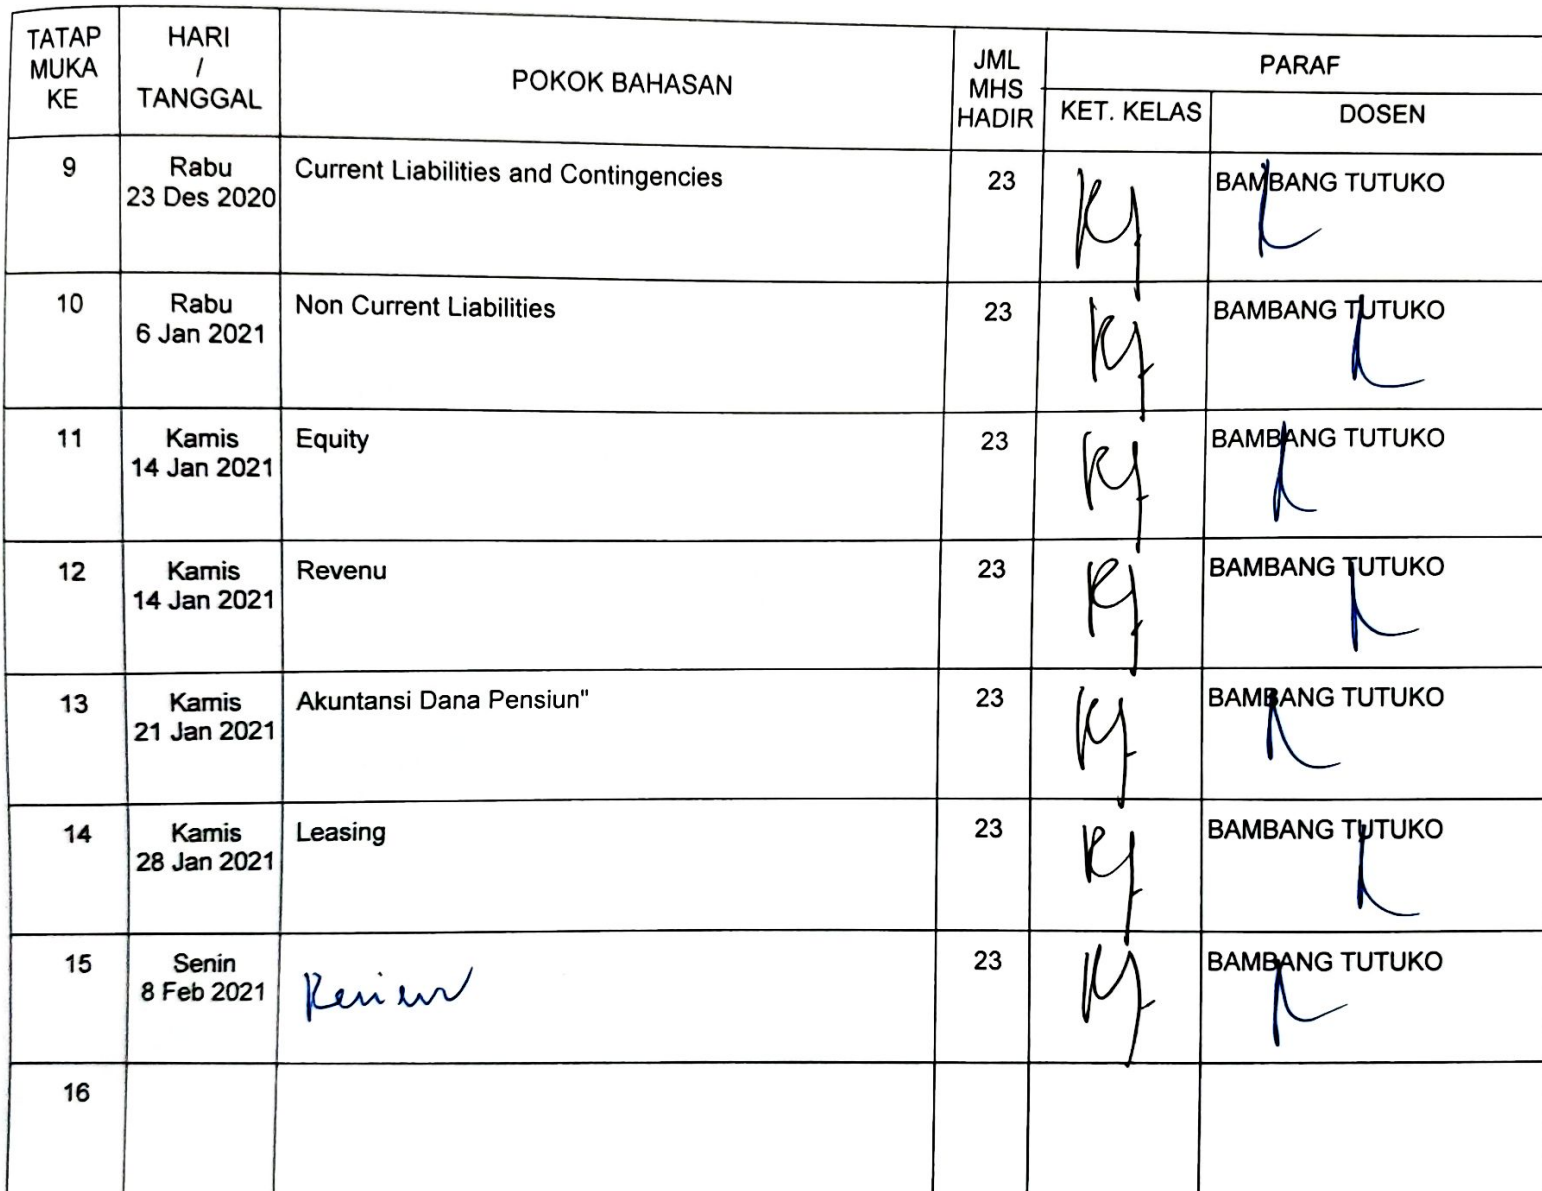 TATAP MUKA KE
HARI / TANGGAL
POKOK BAHASAN
JML MHS HADIR
PARAF
KET. KELAS
DOSEN
9
Rabu
23 Des 2020
Current Liabilities and Contingencies
23
BAMBANG TUTUKO
10
Rabu
6 Jan 2021
Non Current Liabilities
23
BAMBANG TUTUKO
11
Kamis
14 Jan 2021
Equity
23
BAMBANG TUTUKO
12
Kamis
14 Jan 2021
Revenu
23
BAMBANG TUTUKO
13
Kamis
21 Jan 2021
Akuntansi Dana Pensiun"
23
BAMBANG TUTUKO
14
Kamis
28 Jan 2021
Leasing
23
BAMBANG TUTUKO
15
Senin
8 Feb 2021
Review
23
BAMBANG TUTUKO
16